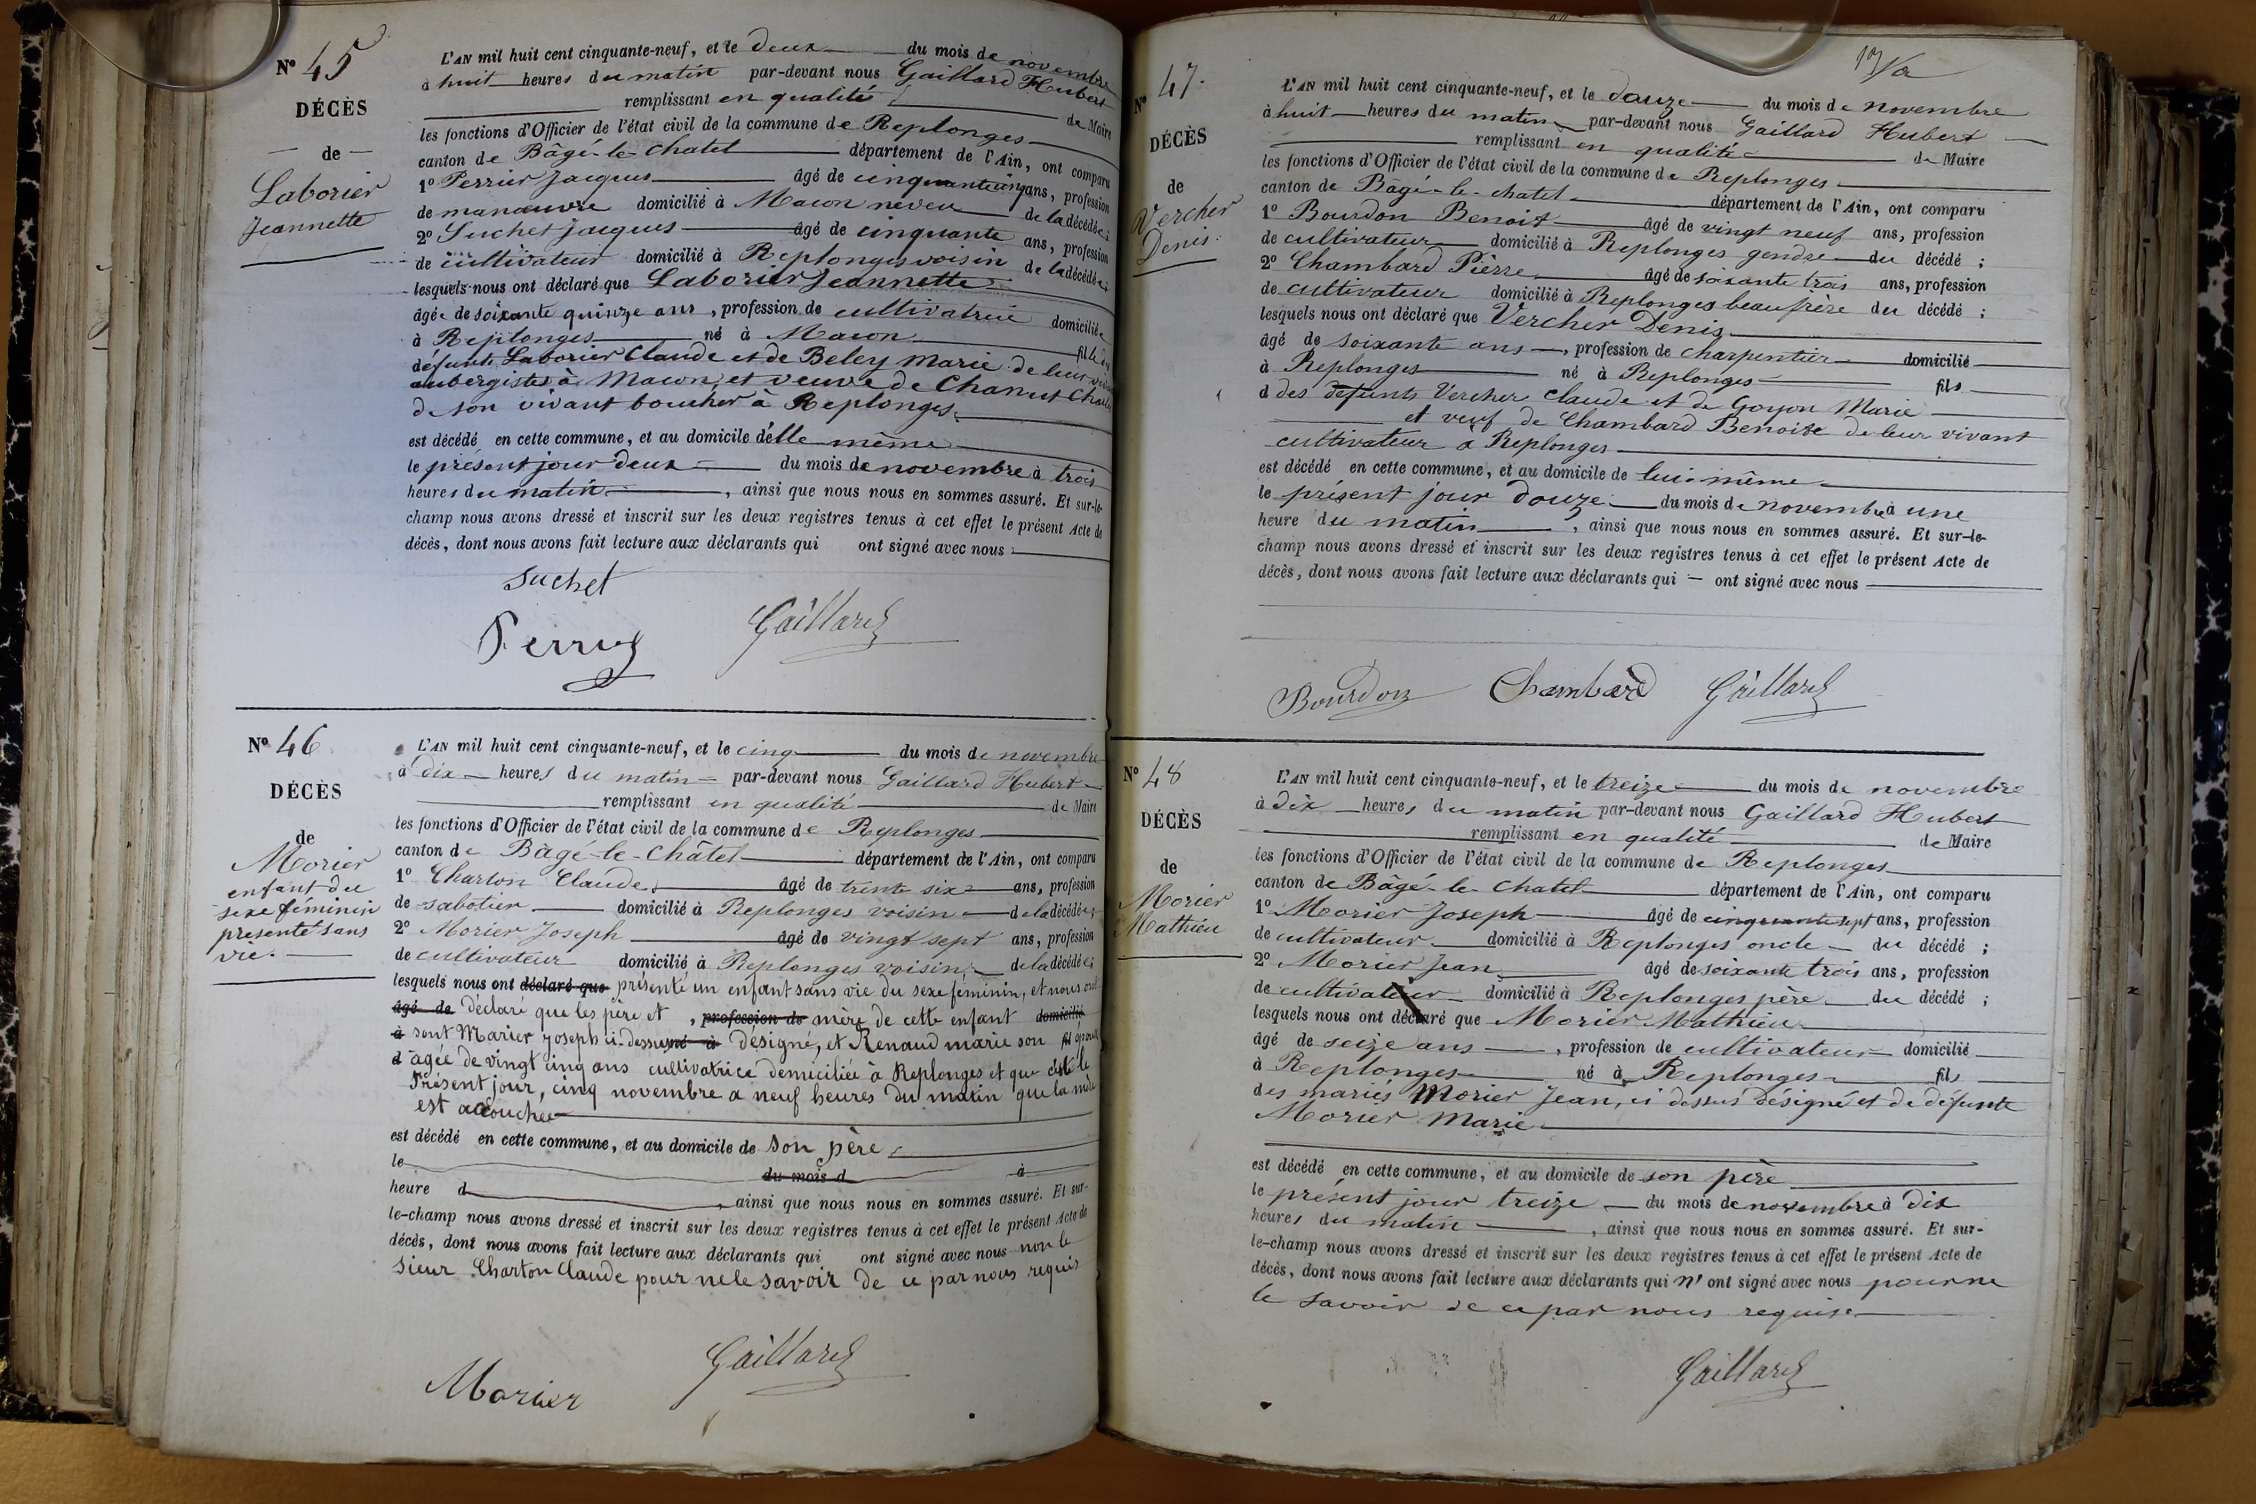 N° 45
DÉCÈS
de
Laborier
Jeannette
L'AN mil huit cent cinquante-neuf, et le deux du mois de novembre
à huit heures du matin par-devant nous Gaillard Hubert
remplissant en qualité de Maire
les fonctions d'Officier de l'état civil de la commune de Replonges
canton de Bâgé-le-chatel département de l'Ain, ont comparu
1° Perrier Jacques âgé de cinquante cinq ans, profession
de manœuvre domicilié à Macon neveu de la décédée;
2° Suchet jacques âgé de cinquante ans, profession
de cultivateur domicilié à Replonges voisin de la décédée;
lesquels nous ont déclaré que Laborier Jeannette
âgée de soixante quinze ans, profession de cultivatrice domiciliée
à Replonges né à Macon fille de
défunts Laborier Claude et de Beley Marie de leur vivant
aubergistes à Macon, et veuve de Chanut
de son vivant boucher à Replonges.
est décédé en cette commune, et au domicile d'elle même
le présent jour deux du mois de novembre à trois
heures du matin, ainsi que nous nous en sommes assuré. Et sur-le-
champ nous avons dressé et inscrit sur les deux registres tenus à cet effet le présent Acte de
décès, dont nous avons fait lecture aux déclarants qui ont signé avec nous
Suchet
Perrier Gaillard
N° 46
DÉCÈS
de
Morier
enfant du
sexe féminin
présenté sans
vie.
L'AN mil huit cent cinquante-neuf, et le cinq du mois de novembre
à dix heures du matin par-devant nous Gaillard Hubert
remplissant en qualité de Maire
les fonctions d'Officier de l'état civil de la commune de Replonges
canton de Bâgé-le-Châtel département de l'Ain, ont comparu
1° Charton Claude âgé de trente six ans, profession
de sabotier domicilié à Replonges voisin de la décédée;
2° Morier Joseph âgé de vingt sept ans, profession
de cultivateur domicilié à Replonges voisin de la décédée;
lesquels nous ont déclaré que présenté un enfant sans vie du sexe féminin, et nous ont
âgé de déclaré que les père et, profession de mère de cette enfant domicilié
à sont Marier Joseph ci-dessus né à désigné, et Renaud marie son fil épouse
d agée de vingt cinq ans cultivatrice demiciliée à Replonges et que c'est le
Présent jour, cinq novembre a neuf heures du matin que la mère
est accouchée
est décédé en cette commune, et au domicile de son père
le du mois d à
heure d, ainsi que nous nous en sommes assuré. Et sur-
le-champ nous avons dressé et inscrit sur les deux registres tenus à cet effet le présent Acte de
décès, dont nous avons fait lecture aux déclarants qui ont signé avec nous non le
sieur Charton Claude pour ne le savoir de ce par nous requis
Gaillard
Morier
N° 47.
DÉCÈS
de
Vercher
Denis.
L'AN mil huit cent cinquante-neuf, et le douze du mois de novembre
à huit heures du matin par-devant nous Gaillard Hubert
remplissant en qualité de Maire
les fonctions d'Officier de l'état civil de la commune de Replonges
canton de Bâgé-le-chatel département de l'Ain, ont comparu
1° Bourdon Benoit âgé de vingt neuf ans, profession
de cultivateur domicilié à Replonges gendre du décédé;
2° Chambard Pièrre âgé de soixante trois ans, profession
de cultivateur domicilié à Replonges beau frère du décédé;
lesquels nous ont déclaré que Vercher Denis
âgé de soixante ans, profession de charpentier domicilié
à Replonges né à Replonges fils
d des défunts Vercher claude et de Goyon Marie
et veuf de Chambard Benoite de leur vivant
cultivateur à Replonges
est décédé en cette commune, et au domicile de lui-même
le présent jour douze du mois de novembre à une
heure du matin, ainsi que nous nous en sommes assuré. Et sur-le-
champ nous avons dressé et inscrit sur les deux registres tenus à cet effet le présent Acte de
décès, dont nous avons fait lecture aux déclarants qui ont signé avec nous
Bourdon Chambard Gaillard
N° 48
DÉCÈS
de
Morier
Mathieu
L'AN mil huit cent cinquante-neuf, et le treize du mois de novembre
à dix heures du matin par-devant nous Gaillard Hubert
remplissant en qualité de Maire
les fonctions d'Officier de l'état civil de la commune de Replonges
canton de Bâgé-le-chatel département de l'Ain, ont comparu
1° Morier Joseph âgé de cinquante sept ans, profession
de cultivateur domicilié à Replonges oncle du décédé;
2° Morier Jean âgé de soixante trois ans, profession
de cultivateur domicilié à Replonges père du décédé;
lesquels nous ont déclaré que Morier Mathieu
âgé de seize ans, profession de cultivateur domicilié
à Replonges né à Replonges fils
des mariés Morier Jean, ci dessus désigné et de défunte
Morier Marie
est décédé en cette commune, et au domicile de son père
le présent jour treize du mois de novembre à dix
heures du matin, ainsi que nous nous en sommes assuré. Et sur-
le-champ nous avons dressé et inscrit sur les deux registres tenus à cet effet le présent Acte de
décès, dont nous avons fait lecture aux déclarants qui n'ont signé avec nous pour ne
le savoir de ce par nous requis
Gaillard